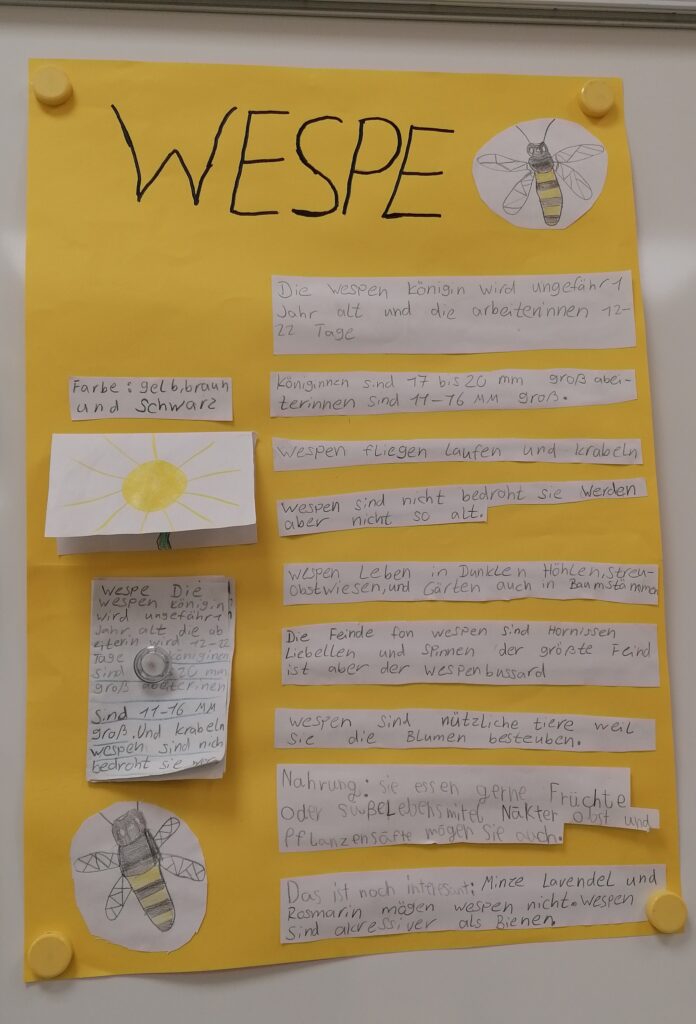 WESPE
Die wespen königin wird ungefähr 1
Jahr alt und die arbeiterinnen 12-
22 Tage
Königinnen sind 17 bis 20 mm groß abei-
terinnen sind 11-16 MM groß.
Wespen fliegen laufen und krabeln
Wespen sind nicht bedroht sie werden
aber nicht so alt.
Wespen Leben in Dunklen Höhlen, Streu-
Obstwiesen, und Gärten auch in Baumstämmen
Die Feinde fon wespen sind Hornissen
Liebellen und Spinnen der größte Feind
ist aber der Wespenbussard
Wespen sind nützliche tiere weil
sie die Blumen besteuben.
Nahrung: sie essen gerne Früchte
Oder süßelebensmitel Näkter obst und
Pflanzensäfte mögen sie auch.
Das ist noch interesant: Minze Lavendel und
Rosmarin mögen wespen nicht. Wespen
Sind akressiver als Bienen.
Farbe: gelb, braun
und Schwarz
Wespe Die
wespen königin
wird ungefähr 1
Jahr alt die ab
eiterin wird 12-22
Tage königinen
sind 20 mm
groß abeiterinen
sind 11-16 MM
groß. Und krabeln
wespen sind nich
bedroht sie